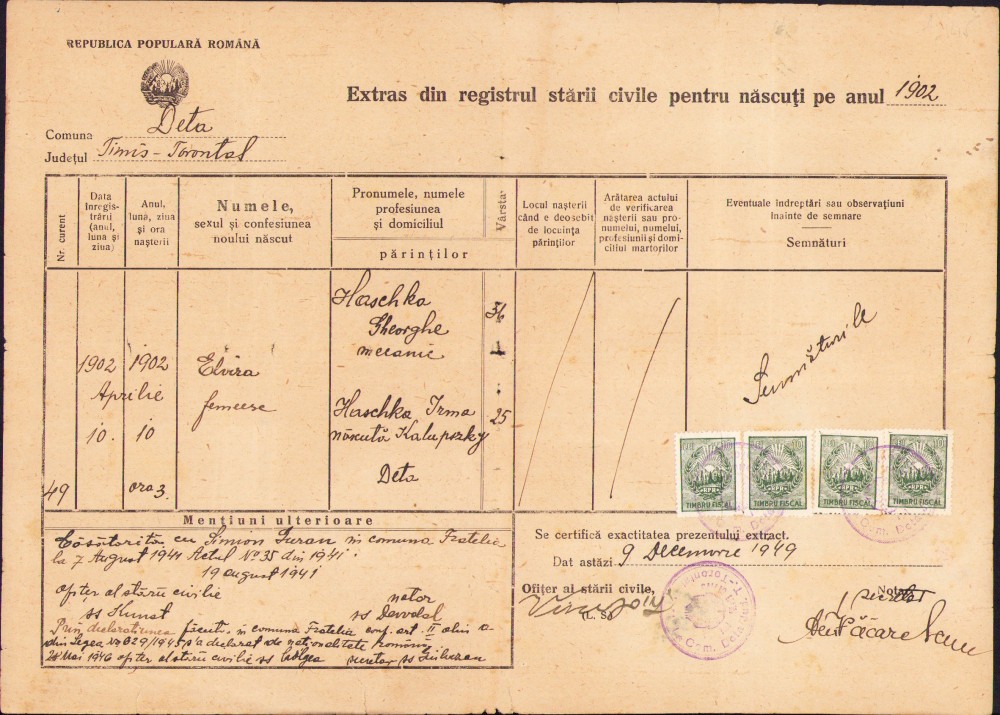 REPUBLICA POPULARĂ ROMÂNĂ
Extras din registrul stării civile pentru născuți pe anul 1902
Comuna Deta
Județul Timis-Torontal
Nr. curent
Data înregistrării (anul, luna și ziua)
Anul, luna, ziua și ora nașterii
Numele, sexul și confesiunea noului născut
Pronumele, numele profesiunea și domiciliul
părinților
Vârsta
Locul nașterii când e deosebit de locuința părinților
Arătarea actului de verificarea nașterii sau pronumelui, numelui, profesiunii și domiciliul martorilor
Eventuale îndreptări sau observațiuni înainte de semnare
Semnături
49
1902
Aprilie
10.
1902
10
ora 3.
Elvira
femeese
Haschka
Gheorghe
mecanic
Haschka Irma
născută Kalupszky
Deta
25
Semnăturile
TIMBRU FISCAL
TIMBRU FISCAL
TIMBRU FISCAL
TIMBRU FISCAL
Mențiuni ulterioare
Căsătorită cu Simion in comuna Fratelia
la 7 August 1941 Actul No 35 din 1941.
19 august 1941
ofițer al stării civile
notar
ss
ss
Prin declaratiunea făcută in comuna Fratelia conf. art. II alin a
din Legea No 629/1945 s'a declarat de naționalitate Română
28 Mai 1946 ofițer al stării civile ss secretar ss
Se certifică exactitatea prezentului extract.
Dat astăzi 9 Decemvrie 1949
Ofițer al stării civile,
(L. S.)
Notar